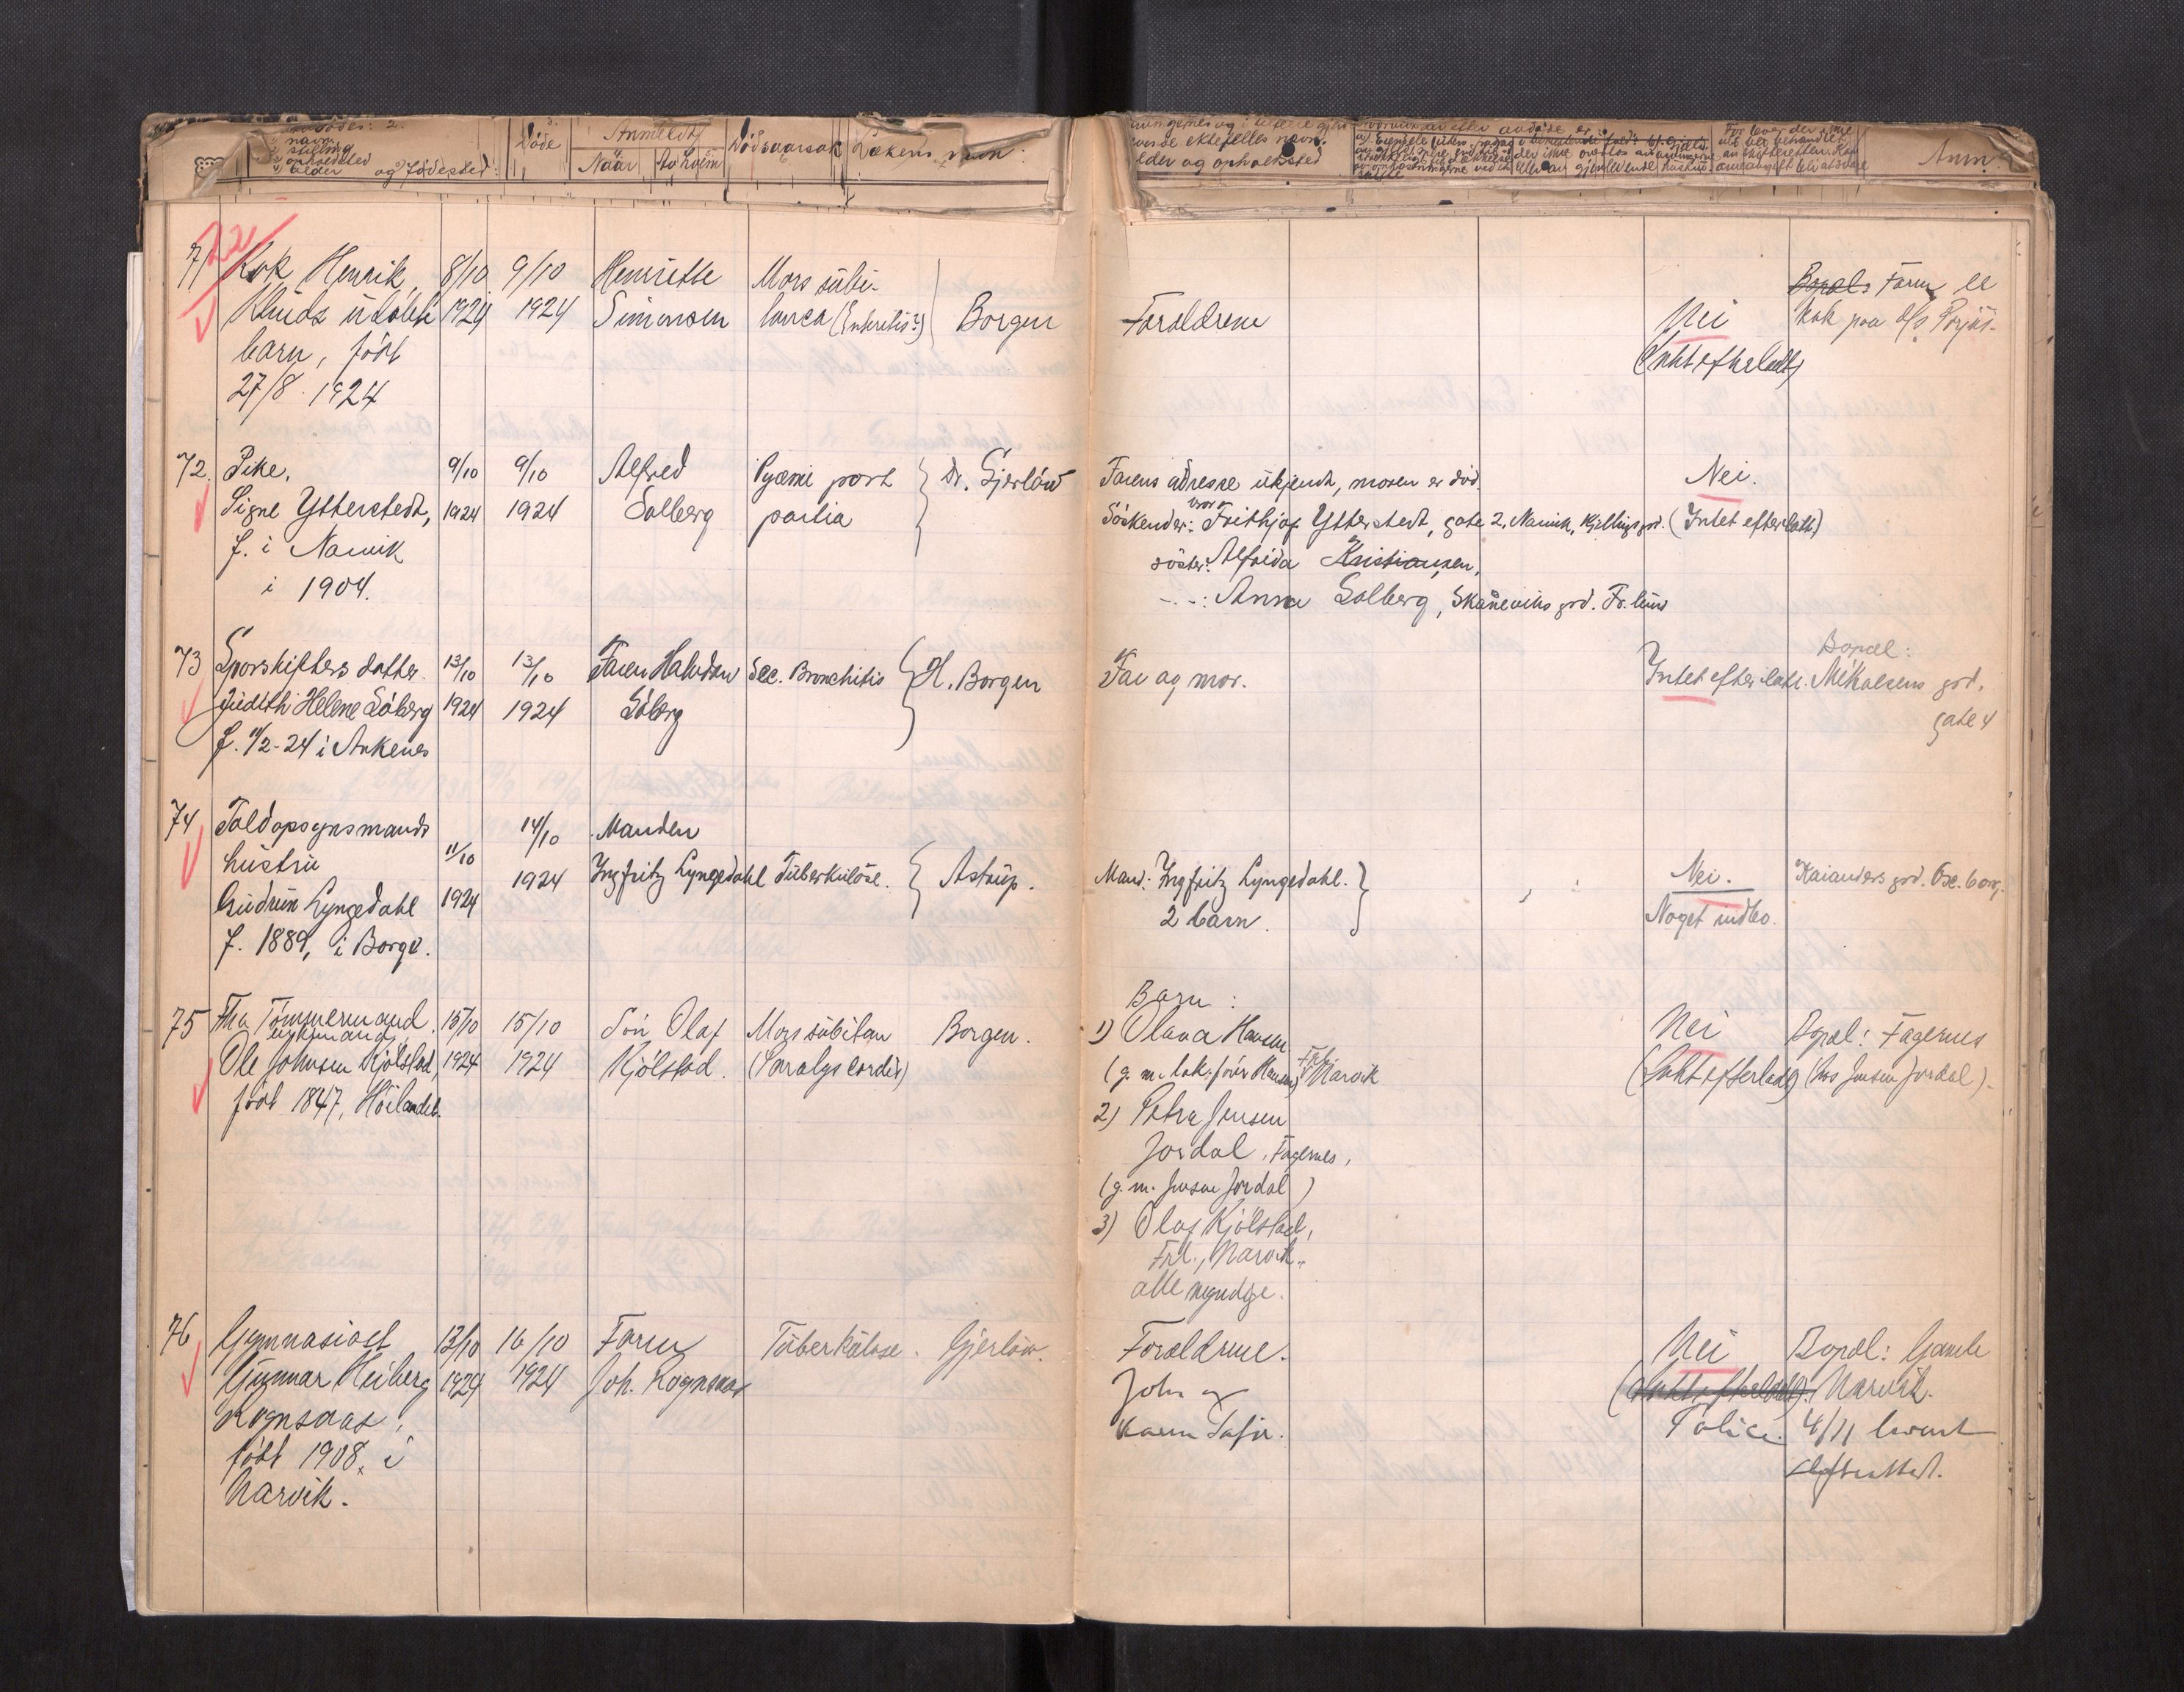 navn
stilling
opholdsted
alder og fødested:
Døde
Anmeldt
Naar
Av hvem
Dødsaarsak
Lækens navn
ektefelles navn,
alder og opholdssted
Anm.
71
Kok Henrik
udøbte
barn, født
27/8 1924
8/10
1924
9/10
1924
Henriette
Simonsen
Mors subi-
tanea (Enteritis?)
Borgen
Forældrene
Nei
(Intet efterladt)
Bopæl: Faren er
kok paa d/s
72.
Pike,
Signe Ytterstedt,
f. i Narvik
i 1904.
9/10
1924
9/10
1924
Alfred
Solberg
Pyæmi post
partia
Dr. Gjerløw
Farens adresse ukjendt, moren er død.
Söskender: bror Frithjof Ytterstedt, gate 2, Narvik, Kjellings grd.
söster: Alfrida Kristiansen,
-.-: Anna Solberg, Skåneviks grd. Fr.lund
Nei.
(Intet efterlatt)
73
Sporskifters datter
Judith Helene Söberg
f. 11/2-24 i Ankenes
13/10
1924
13/10
1924
Faren Halvdan
Söberg
Sec. Bronchitis
H. Borgen
Far og mor.
Intet efterlatt.
Bopæl:
Mikalsens grd.
gate 4
74
Toldopsynsmands
hustru
Gudrun Lyngedahl
f. 1889, i Borge.
11/10
1924
14/10
1924
Manden
Ingfritz Lyngedahl
Tuberkulose.
Astrup.
Mand: Ingfritz Lyngedahl.
2 barn.
Nei.
Noget indbo.
Kaianders grd. Osc.borg.
75
Fhv Tömmermand,
enkemand,
Ole Johnsen Kjölstad,
født 1847, Höilandet.
15/10
1924
15/10
1924
Sön Olaf
Kjölstad.
Mors subitan
(Paralys cordis)
Borgen.
Barn:
1) Olava Hansen
(g. m. lok.förer Hansen) Narvik
2) Petra Jensen
Jordal, Fagernes,
(g. m. Jensen Jordal)
3) Olaf Kjölstad,
Frl., Narvik.
alle myndige.
Nei
(Intet efterladt)
Bopæl: Fagernes
(hos Jensen Jordal).
76
Gymnasiast
Gunnar Heiberg
Rognsaas,
født 1908, i
Narvik.
13/10
1924
16/10
1924
Faren
Joh. Rognsaas
Tuberkulose.
Gjerløw.
Forældrene.
John og
Karen
Nei
(Intet efterladt).
Police.
Bopæl: Gamle
Narvik.
4/11